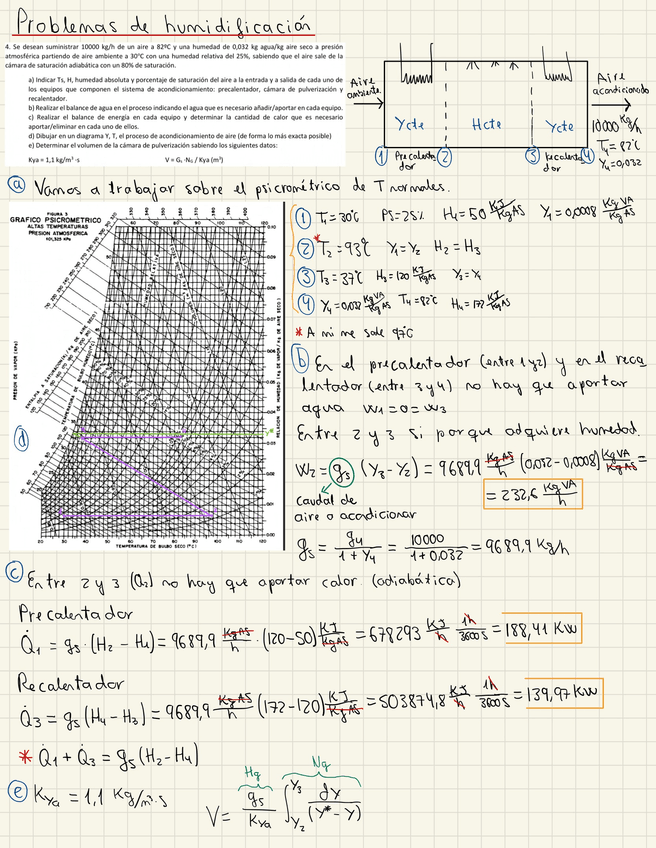 Problemas de humidificación
4. Se desean suministrar 10000 kg/h de un aire a 82ºC y una humedad de 0,032 kg agua/kg aire seco a presión
atmosférica partiendo de aire ambiente a 30ºC con una humedad relativa del 25%, sabiendo que el aire sale de la
cámara de saturación adiabática con un 80% de saturación.
a) Indicar Ts, H, humedad absoluta y porcentaje de saturación del aire a la entrada y a salida de cada uno de
los equipos que componen el sistema de acondicionamiento: precalentador, cámara de pulverización y
recalentador.
b) Realizar el balance de agua en el proceso indicando el agua que es necesario añadir/aportar en cada equipo.
c) Realizar el balance de energía en cada equipo y determinar la cantidad de calor que es necesario
aportar/eliminar en cada uno de ellos.
d) Dibujar en un diagrama Y, T, el proceso de acondicionamiento de aire (de forma lo más exacta posible)
e) Determinar el volumen de la cámara de pulverización sabiendo los siguientes datos:
Kya = 1,1 kg/m³·s V = Gₛ ·N_G / Kya (m³)
Aire ambiente
Ycte Hcte Ycte
① Precalentador ② ③ recalentador ④
Aire acondicionado
10000 Kg/h
T₄ = 82ºC
Y₄ = 0,032
ⓐ Vamos a trabajar sobre el psicrométrico de T normales.
FIGURA 3
GRAFICO PSICROMETRICO
ALTAS TEMPERATURAS
PRESION ATMOSFERICA
101,325 kPa
TEMPERATURA DE BULBO SECO (ºC)
① T₁ = 30ºC PS = 25% H₁ = 50 KJ/KgAS Y₁ = 0,0008 KgVA/KgAS
② *T₂ = 93ºC Y₁ = Y₂ H₂ = H₃
③ T₃ = 37ºC H₃ = 120 KJ/KgAS Y₃ = Y₄
④ Y₄ = 0,032 KgVA/KgAS T₄ = 82ºC H₄ = 172 KJ/KgAS
* A mi me sale 97ºC
ⓑ En el precalentador (entre 1 y 2) y en el reca
lentador (entre 3 y 4) no hay que aportar
agua W₁ = 0 = W₃
Entre 2 y 3 si porque adquiere humedad.
W₂ = gₛ (Y₃ - Y₂) = 9689,9 KgAS/h (0,032 - 0,0008) KgVA/KgAS =
= 232,6 KgVA/h
caudal de
aire a acondicionar
gₛ = g₄/(1 + Y₄) = 10000/(1 + 0,032) = 9689,9 Kg/h
ⓓ
ⓒ Entre 2 y 3 (Q₂) no hay que aportar calor (adiabático)
Precalentador
Q̇₁ = gₛ · (H₂ - H₁) = 9689,9 KgAS/h · (120 - 50) KJ/KgAS = 678293 KJ/h 1h/3600s = 188,41 KW
Recalentador
Q̇₃ = gₛ (H₄ - H₃) = 9689,9 KgAS/h (172 - 120) KJ/KgAS = 503874,8 KJ/h 1h/3600s = 139,97 KW
* Q̇₁ + Q̇₃ = gₛ (H₂ - H₄)
ⓔ Kya = 1,1 Kg/m³·s
Hg Ng
V = gₛ/Kya ∫_Y₂^Y₃ dY/(Y* - Y)